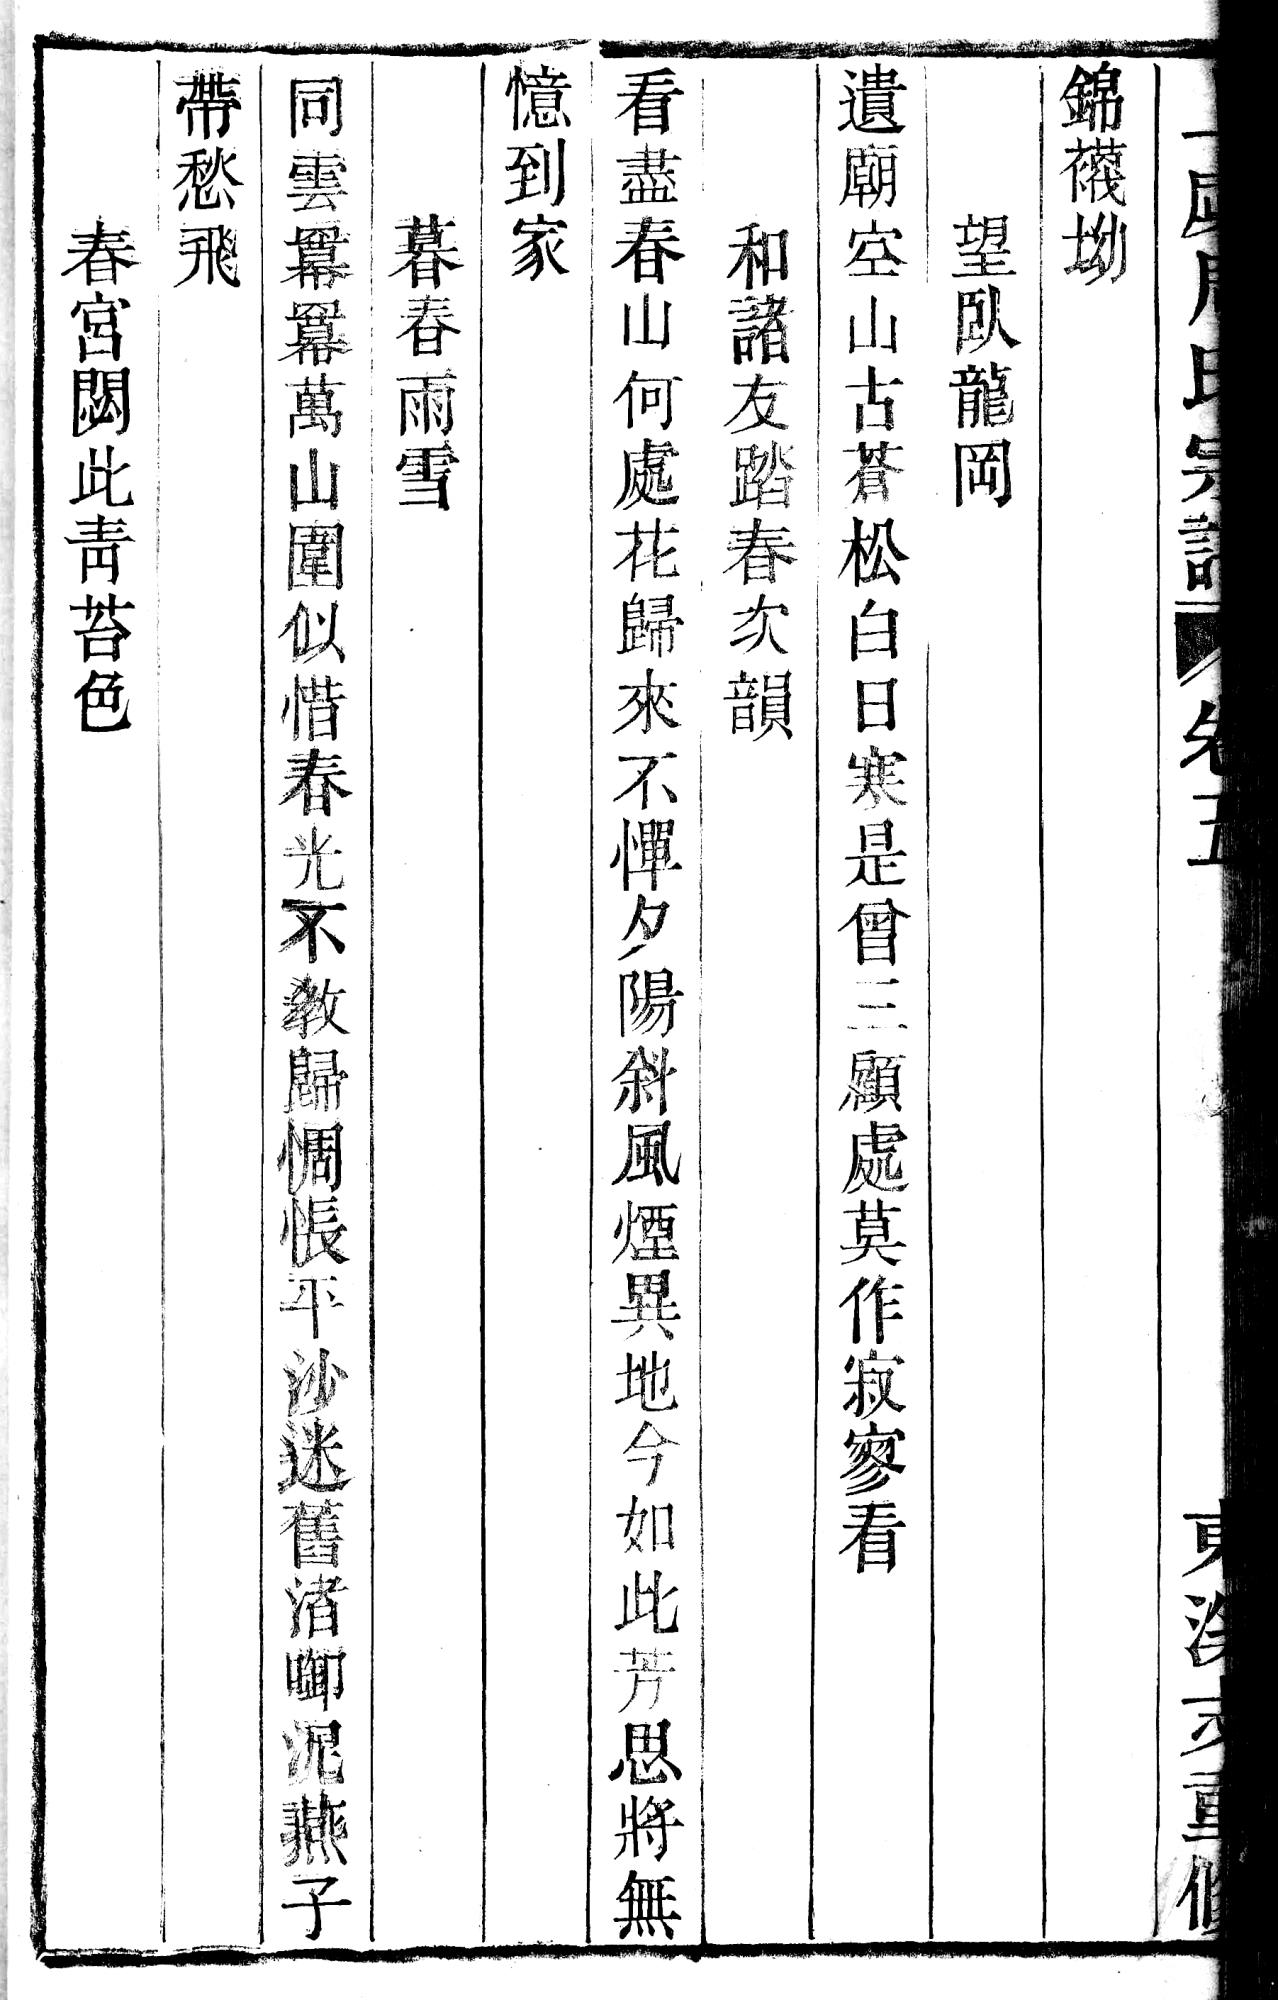 氏宗譜 卷五 東 重修
錦襪坳
望臥龍岡
遺廟空山古蒼松白日寒是曾三顧處莫作寂寥看
和諸友踏春次韻
看盡春山何處花歸來不憚夕陽斜風煙異地今如此芳思將無
憶到家
暮春雨雪
同雲羃羃萬山圍似惜春光不教歸惆悵平沙迷舊渚啣泥燕子
帶愁飛
春宮閟此靑苔色